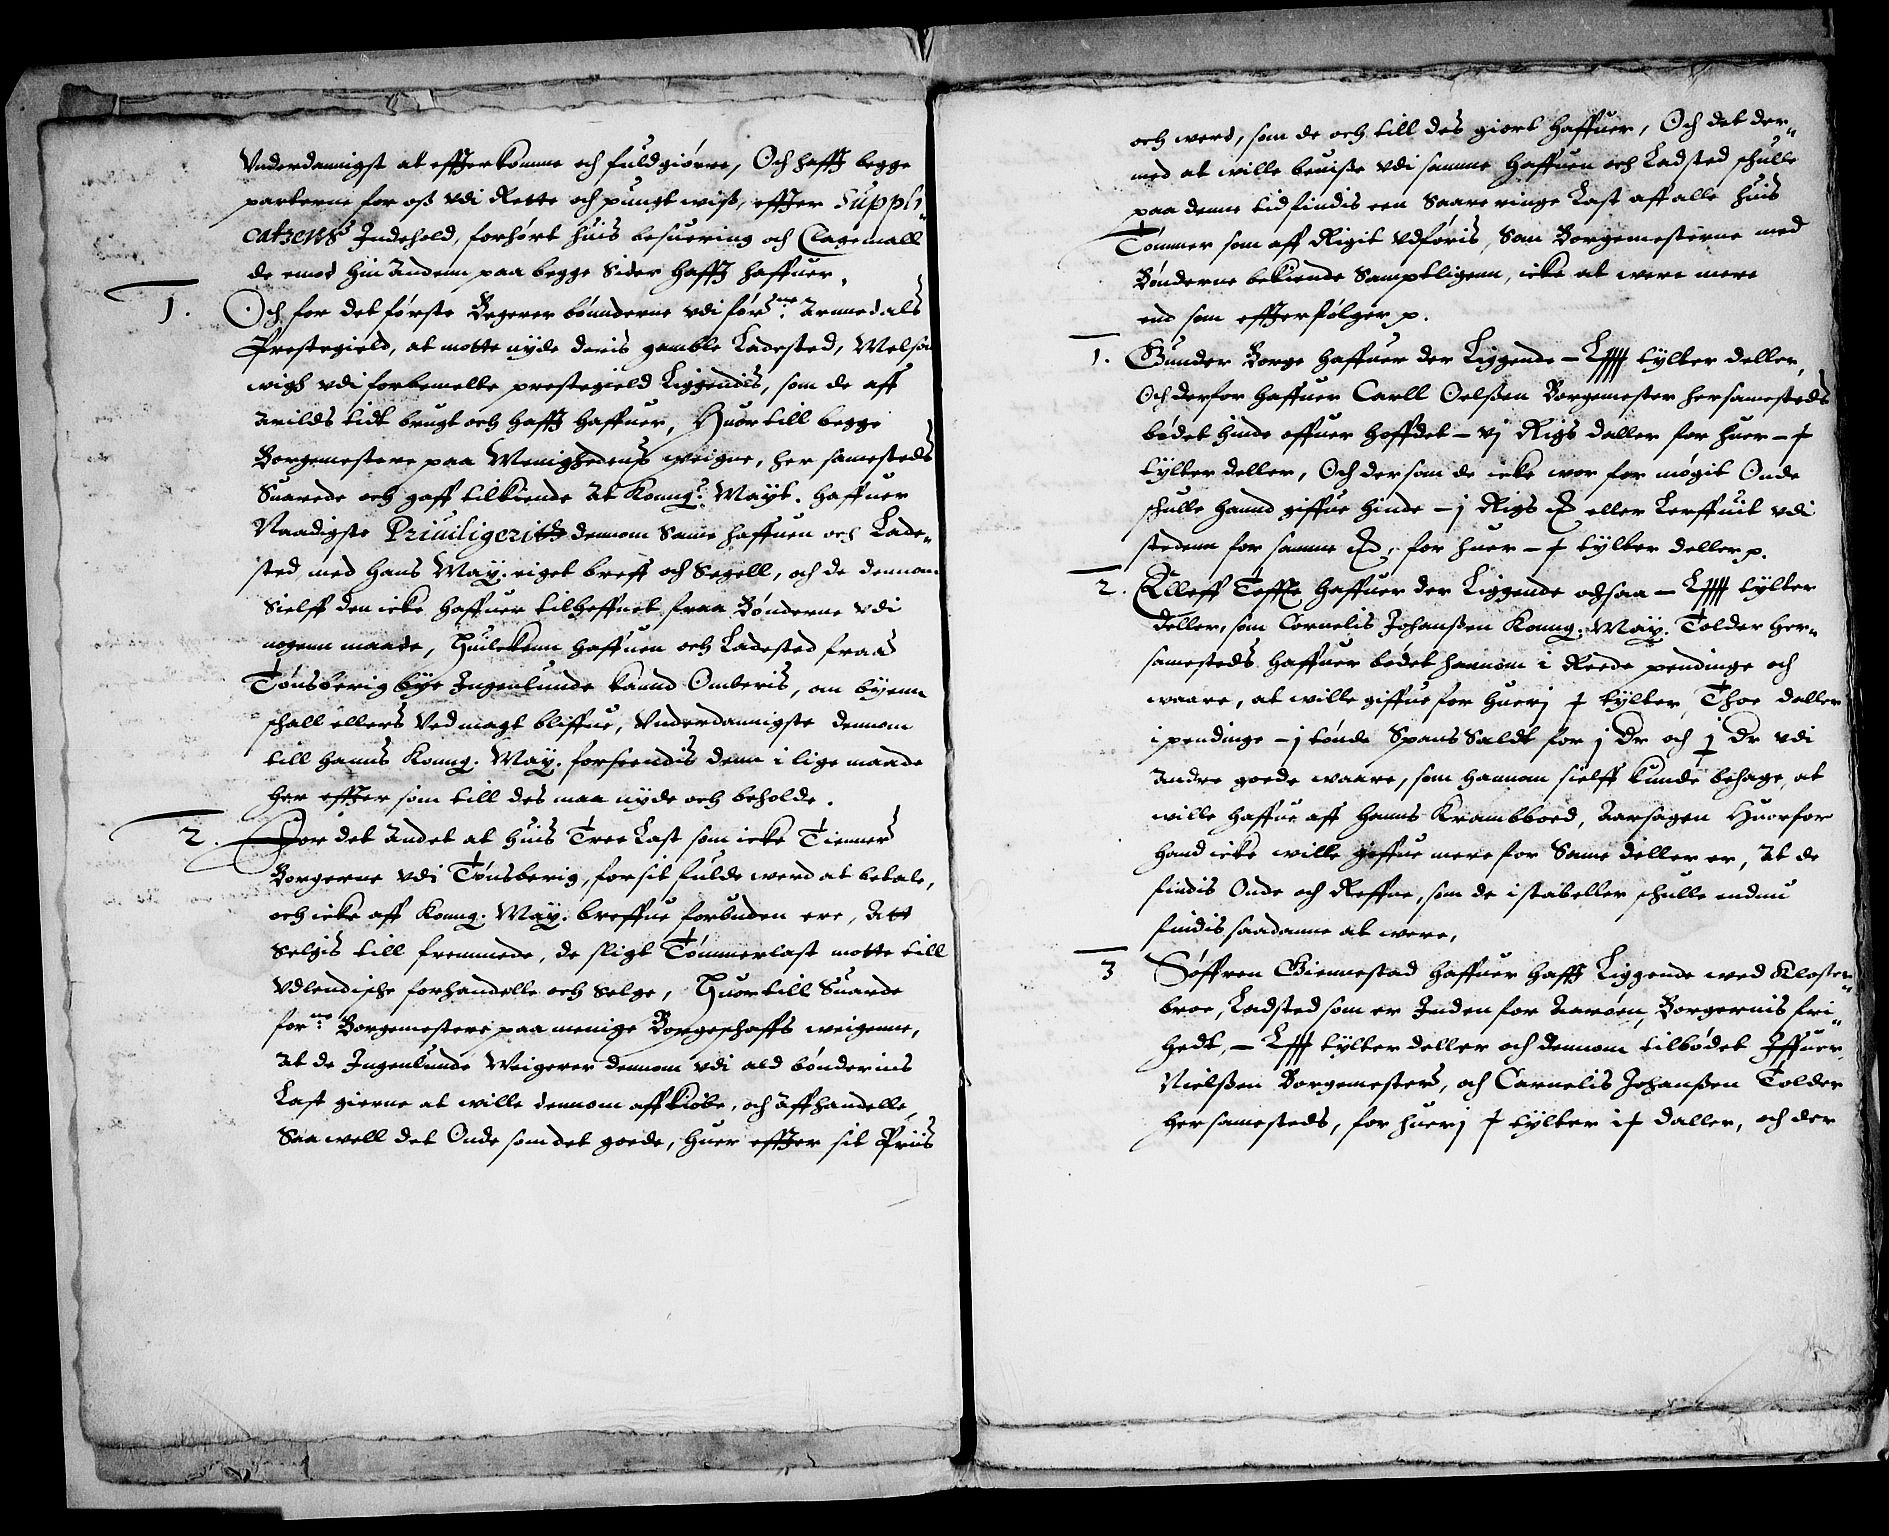 Vnderdannigst at effterkomme och fuldgiørre, Och hafft begge
parterne for oß vdi Rette och pungt wiß, effter Suppli„
catzens Indehold, forhørt huis besuering och Clagemall
de emod hin Andenn paa begge Sider hafft haffuer.
1. Och for det første Begerer bønnderne vdi førsne Arnnedals
Prestegield, at motte nyde deris gamble Ladested, Melsom
wigh vdi forbemelte prestegield Liggendis, som de aff
Arilds tidt brugt och hafft haffuer, Huor till begge
Borgemestere paa Menighedens weigne, her samesteds
Suarede och gaff tilkiende At Konng: Mayt. haffuer
Naadigste Priuiligerith dennom Same haffuen och Lade„
sted, med hans May. eiget breff och Segell, och de dennom
Sielff den icke haffuer tilheffnet fraa Bønderne vdi
nogenn maade, Huilckenn haffuen och Ladested fraa
Tønsberig bye Ingenlunde kannd Omberis, om byenn
schall ellers Ved magt bliffue, Vnderdannigste dennom
till hanns Konng. May. forseendis denn i lige maade
her effter som till des maa nyde och beholde.
2. For det Andet at huis Tree Last som icke Tienner
Borgerne vdi Tønsberig, for sit fulde werd at betale,
och icke aff Konng. May. breffue forbuden ere, Att
Selgis till fremmede, de sligt Tømmerlast motte till
Vdlendische forhandelle och Selge, Huor till Suarde
forne: Borgemestere paa menige Borgeschaffs weigenne,
At de Ingenlunde Weigerer dennom vdi ald bønderins
Last gierne at wille dennom aff kiøbe, och affhandelle
Saa well det Onde som det goede, huer effter sit Priis
och werd, som de och till des giort haffuer, Och det der„
med at wille beuisse vdi samme haffuen och Ladsted schulle
paa denne tid findis een Saare ringe Last aff alle huis
Tømmer som aff Rigit Vdføris, Som Borgemesterne med
Bønderne bekiende Samptligenn, icke at were mere
end som effterfølger p.
1. Gunder Borge haffuer der Liggende – tylter deller,
Och derfor haffuer Carll Oelßen Borgemester hersamesteds
bødet hinde offuer hoffdet – vj Rigs daller for huer –
tylter deller, Och dersom de icke wor for møgit Onde
schulle hannd giffue hinde – j Rigs eller Lerffuit vdi
stedenn for samme, for huer – tylter deller p.
2. Elleff Teffte haffuer der Liggende ochsaa – tylter
deller, som Cornelis Johanßen Konng. May. Tolder her„
samesteds haffuer bødet hannom i Reede pendinge och
waare, at wille giffue for huer j tylter, Thoe daller
i pendinge – j tønde Spans Saldt for j Dr och j Dr vdi
Andre goede waare, som hannom sielff kunde behage, at
wille haffue aff hanns Krambboed, Aarsagen Huorfor
hand icke wille giffue mere for Same deller er, At de
findis Onde och Reffne, som de i stabeller schulle endnu
findis saadanne at were,
3 Søffren Giennestad haffuer hafft Liggende wed Kloster„
broe, Ladsted som er Inden for Aarøen, Borgernis fri„
hedt, – tylter deller och dennom tilbødet Iffuer
Nielßen Borgemester, och Carnelis Johanßen Tolder
hersamesteds, for huer j tylter daller, och der